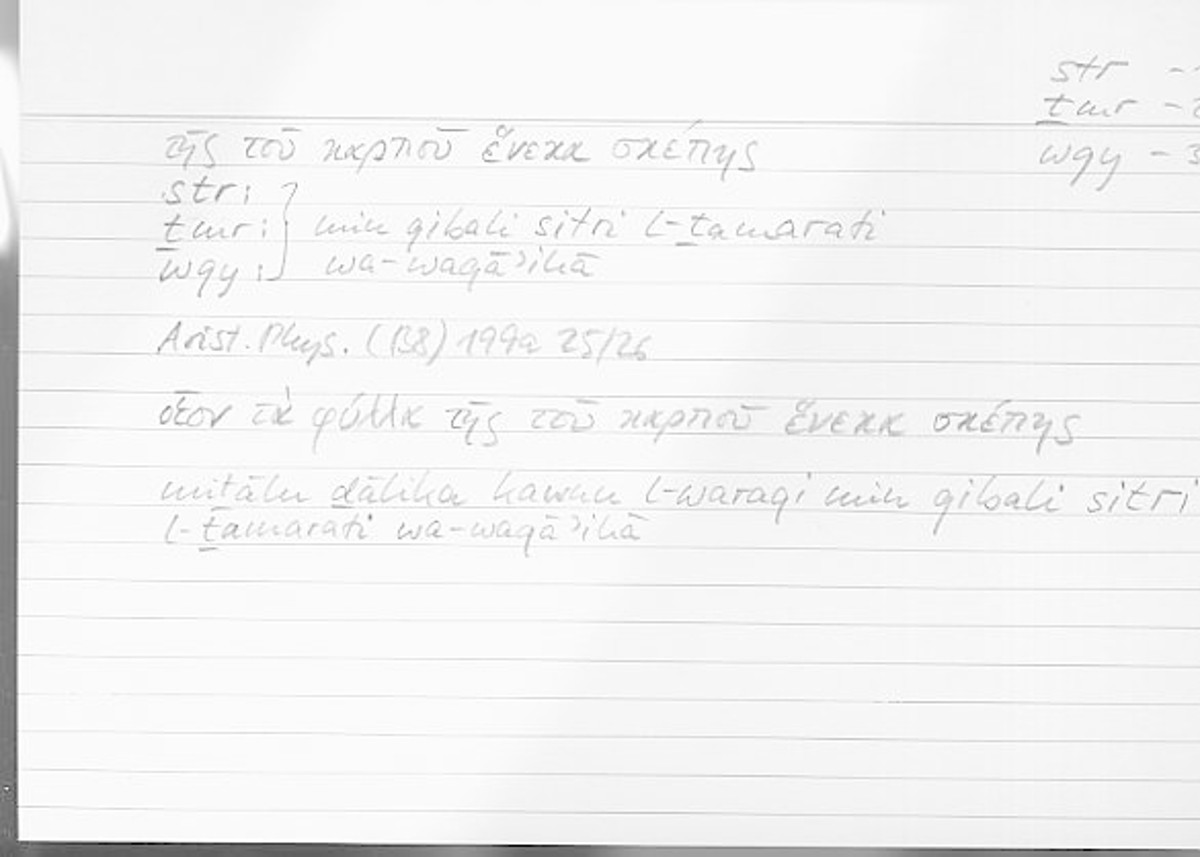 str -
ṯmr -
wqy - 3
τῆς τοῦ καρποῦ ἕνεκα σκέπης
str:
ṯmr: } min qibali sitri l-ṯamarati
wqy: wa-waqāʾihā
Arist. Phys. (B8) 199a 25/26
οἷον τὰ φύλλα τῆς τοῦ καρποῦ ἕνεκα σκέπης
miṯālu ḏālika kawnu l-waraqi min qibali sitri
l-ṯamarati wa-waqāʾihā